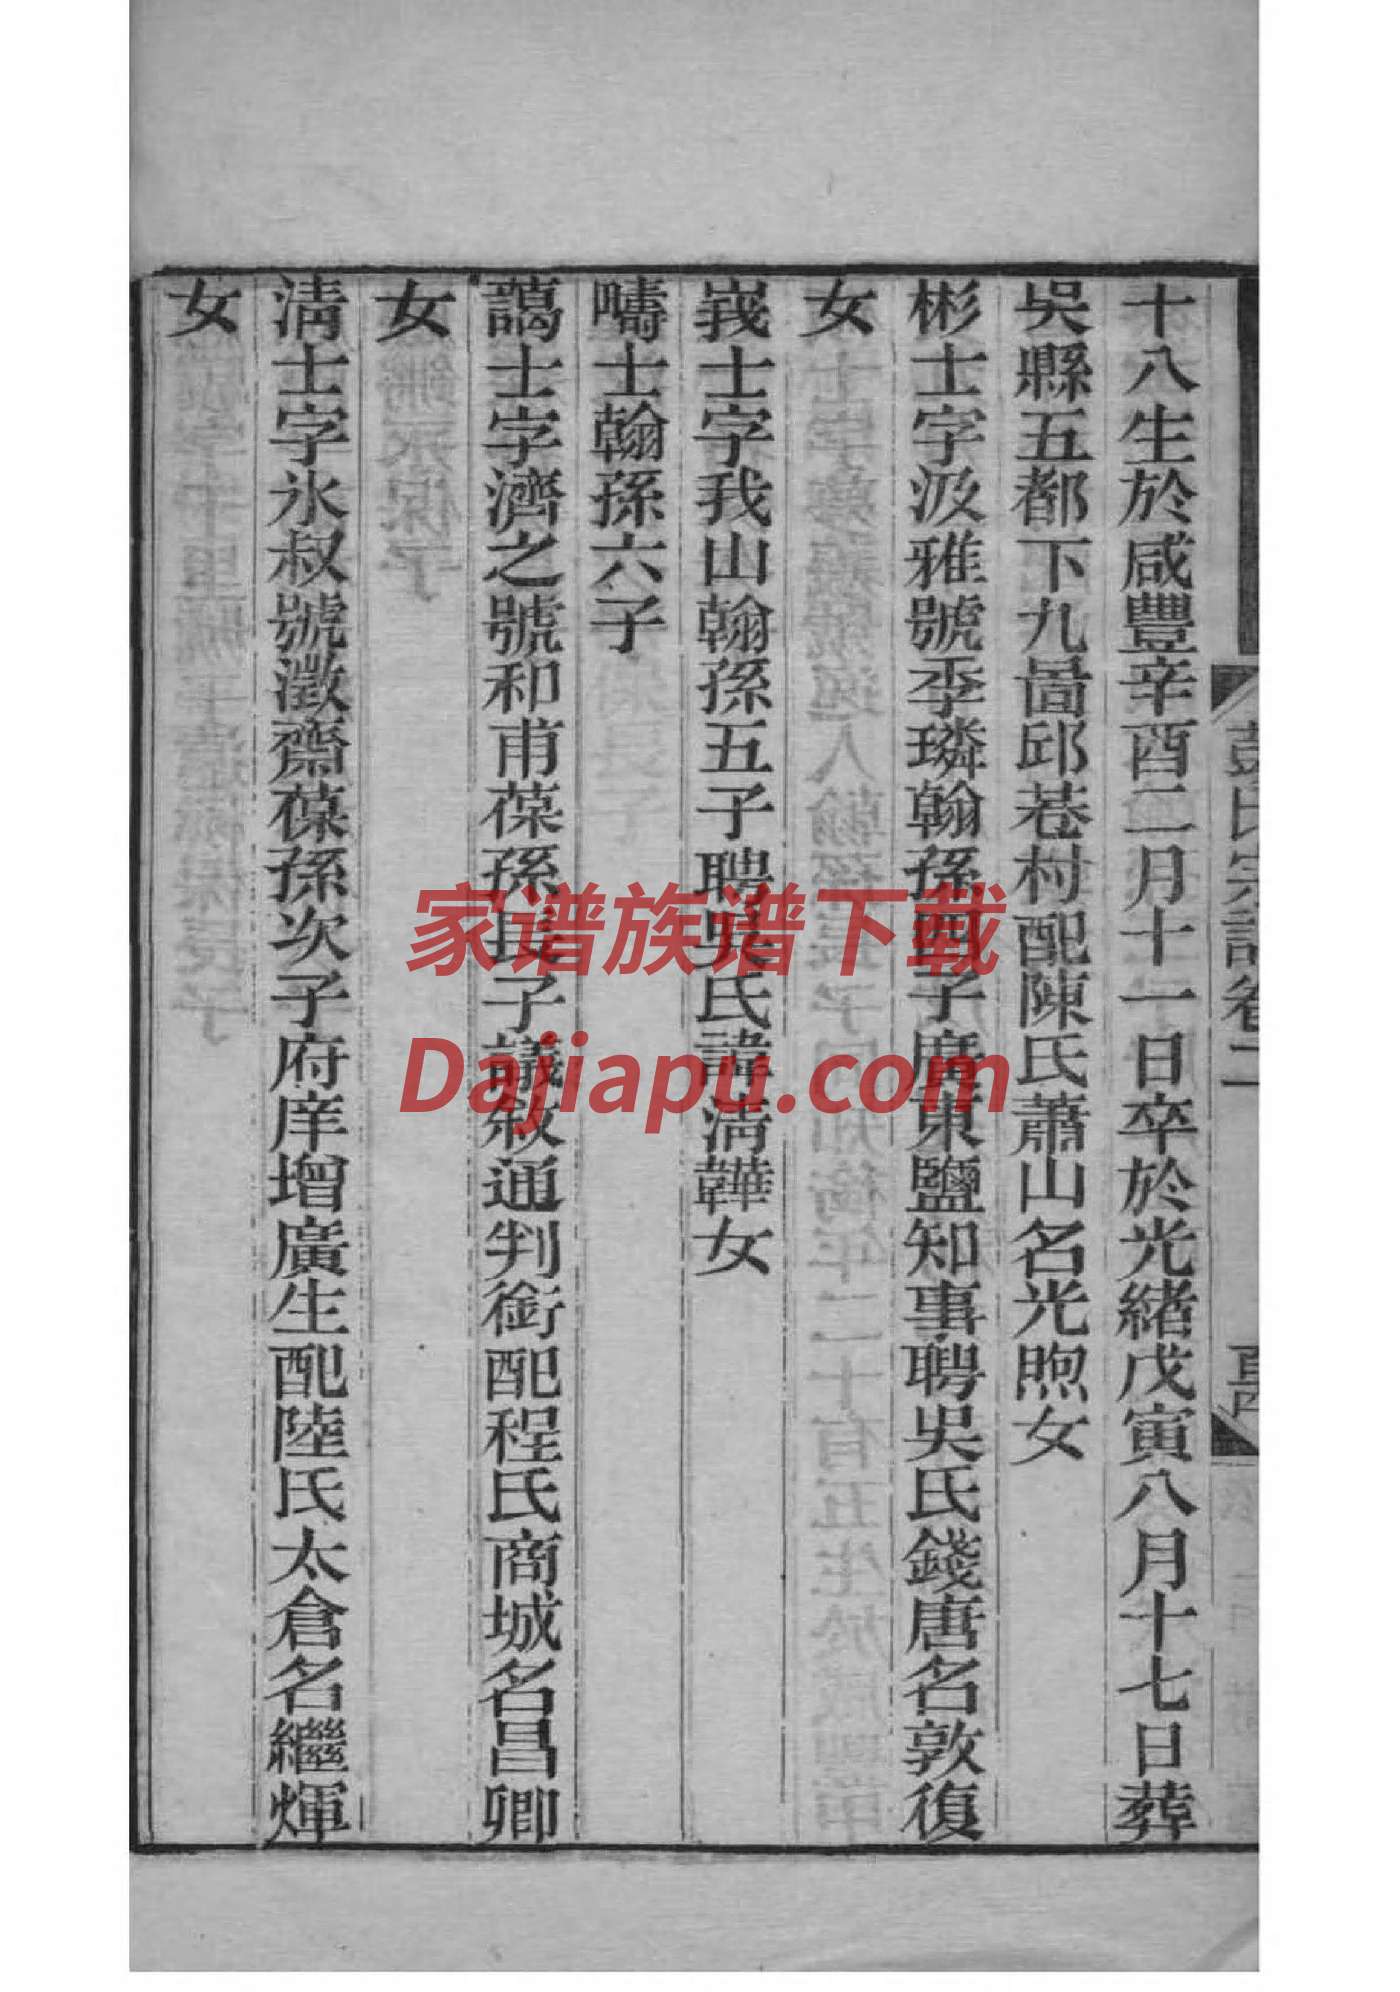 彭氏宗譜卷二
十八生於咸豐辛酉二月十一日卒於光緒戊寅八月十七日葬
吳縣五都下九啚邱巷村配陳氏蕭山名光煦女
彬士字汲雅號季璘翰孫四子廣東鹽知事聘吳氏錢唐名敦復
女
峩士字我山翰孫五子聘吳氏諱淸韡女
疇士翰孫六子
譪士字濟之號和甫葆孫長子議敘通判銜配程氏商城名昌卿
女
淸士字氷叔號澂齋葆孫次子府庠增廣生配陸氏太倉名繼煇
女
家谱族谱下载
Dajiapu.com